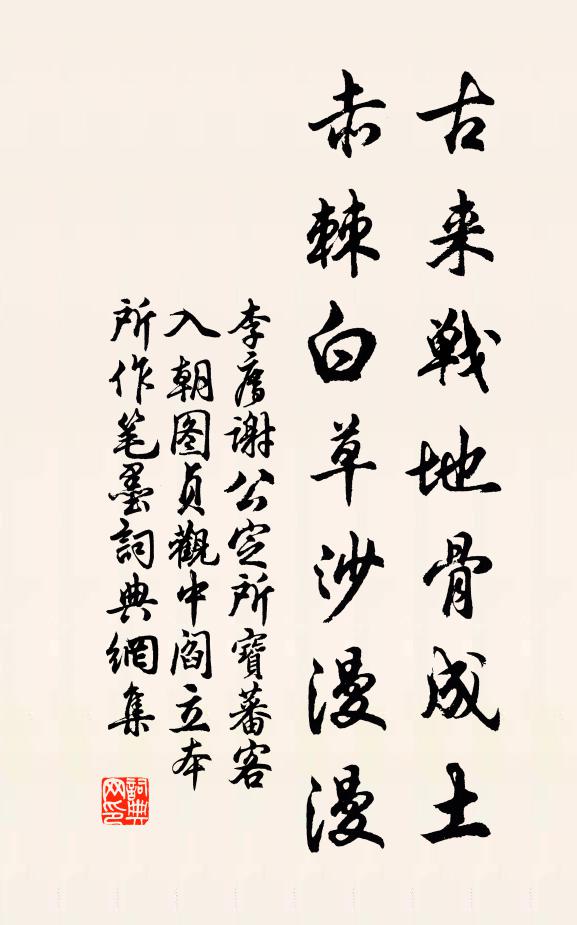 古来戦地骨成土
赤棘白草沙漫漫
李廌謝公定所寶蕃客
入朝图貞觀中閻立本
所作笔墨詞典網集
詞典
网印